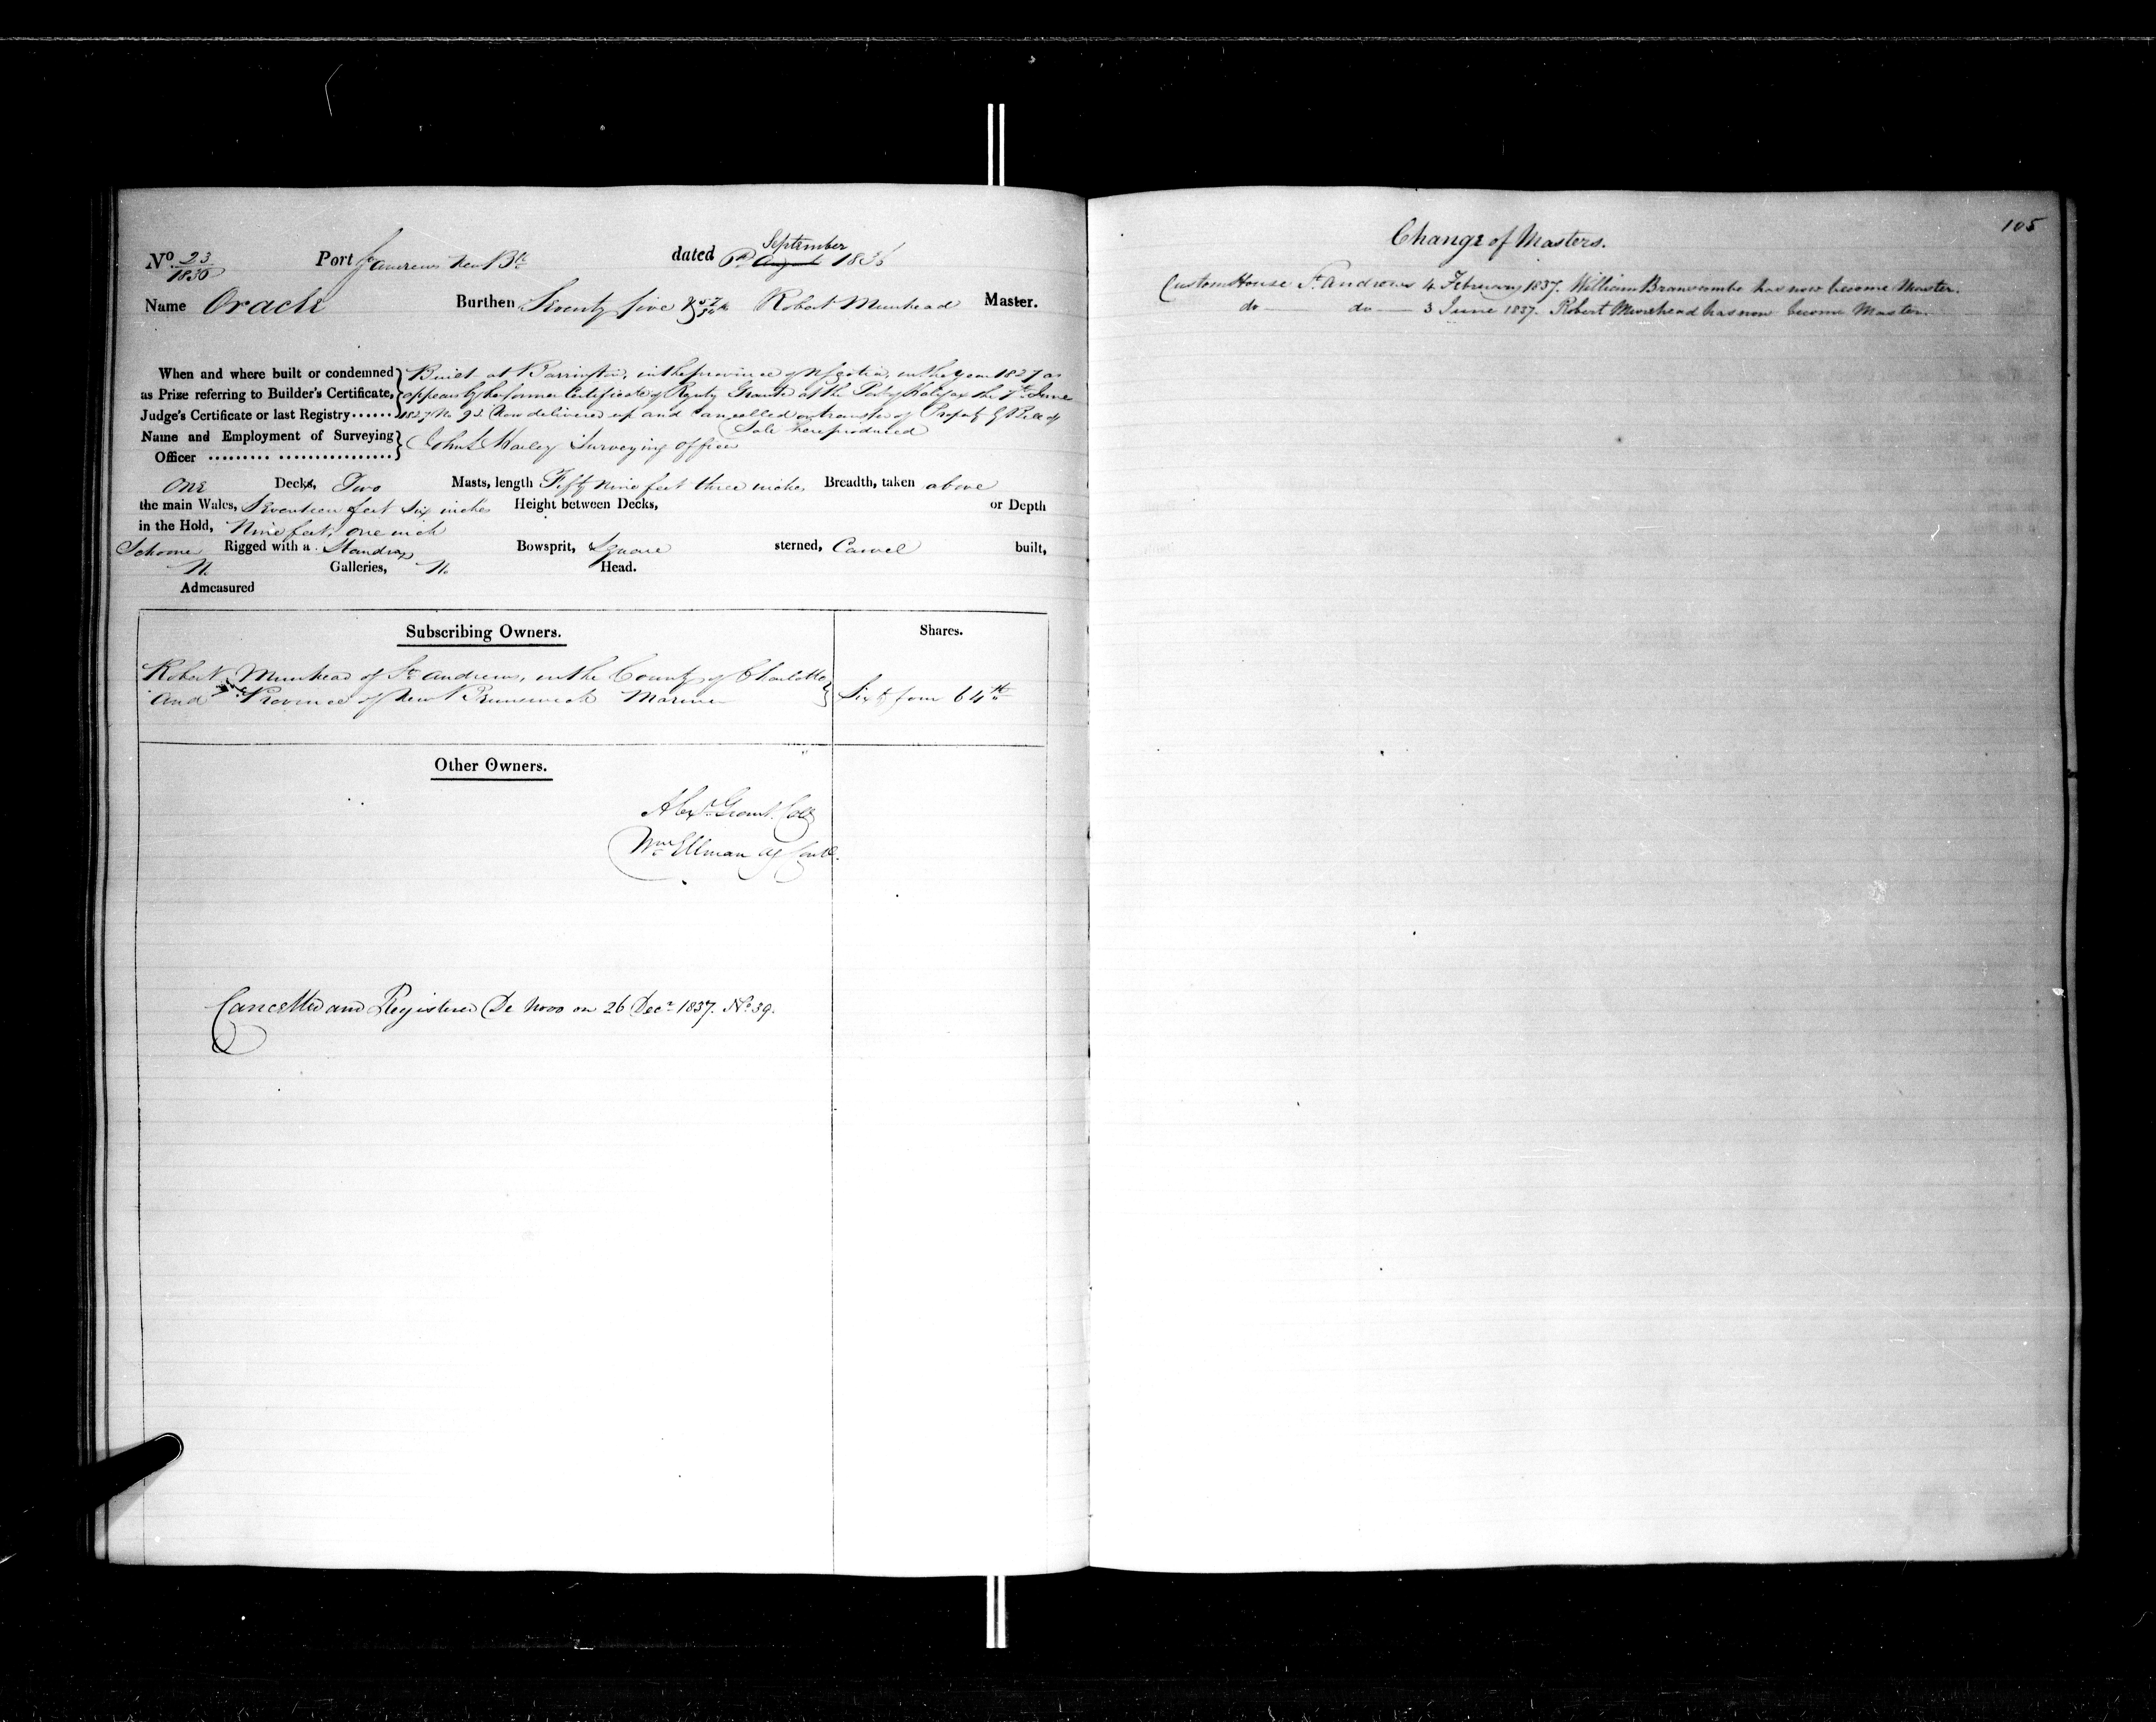 No. 23/1836 Port St Andrews New Bk dated September 1836
Name Oracle Burthen Seventy five Robert Muirhead Master.
When and where built or condemned as Prize referring to Builder's Certificate, Judge's Certificate or last Registry......
Built at Barrington, in the province of N Scotia, in the year 1827 as
appears by her former Certificate of Registry Granted at the Port of Halifax the 7th June
1827 No 92 Now delivered up and Cancelled on transfer of Property by Bill of
Sale here produced
Name and Employment of Surveying Officer ......... ................ John Surveying Officer
One Decks, Two Masts, length Fifty nine feet three inches Breadth, taken above
the main Wales, Seventeen feet six inches Height between Decks, or Depth
in the Hold, Nine feet, one inch
Schooner Rigged with a Standing Bowsprit, Square sterned, Carvel built,
No Galleries, No Head.
Admeasured
Subscribing Owners. Shares.
Robert Muirhead of St Andrews, in the County of Charlotte
and Province of New Brunswick Mariner Sixty four 64ths
Other Owners.
Alexr Grant. Collr
Wm Ellman Ag Contr.
Cancelled and Registered De Novo on 26 Decr 1837. No. 39.
105
Change of Masters.
Custom House St Andrews 4 February 1837. William Branscombe has now become Master.
do — do — 3 June 1837. Robert Muirhead has now become Master.